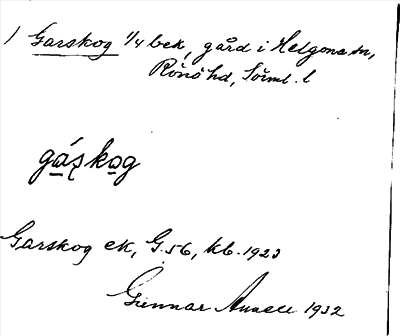 1 Garskog 1/4 bek, gård i Helgona sn,
Rönö hd, Söml. l
gáʂkog
Garskog ek, G. 56, kb. 1923
Gunnar 1932